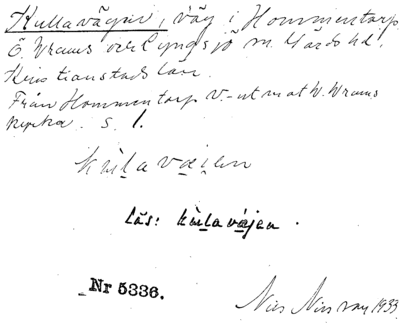 Kullavägen, väg i Hommentorp
Ö. Vrams och Lyngsjö sn. Gärds hd.
Kristianstads län.
Från Hommentorp V.-ut mot V. Vrams
kyrka. S. 1.
kùlavæjen
Läs: kùlavæjen.
Nr 5336.
Nils 1933